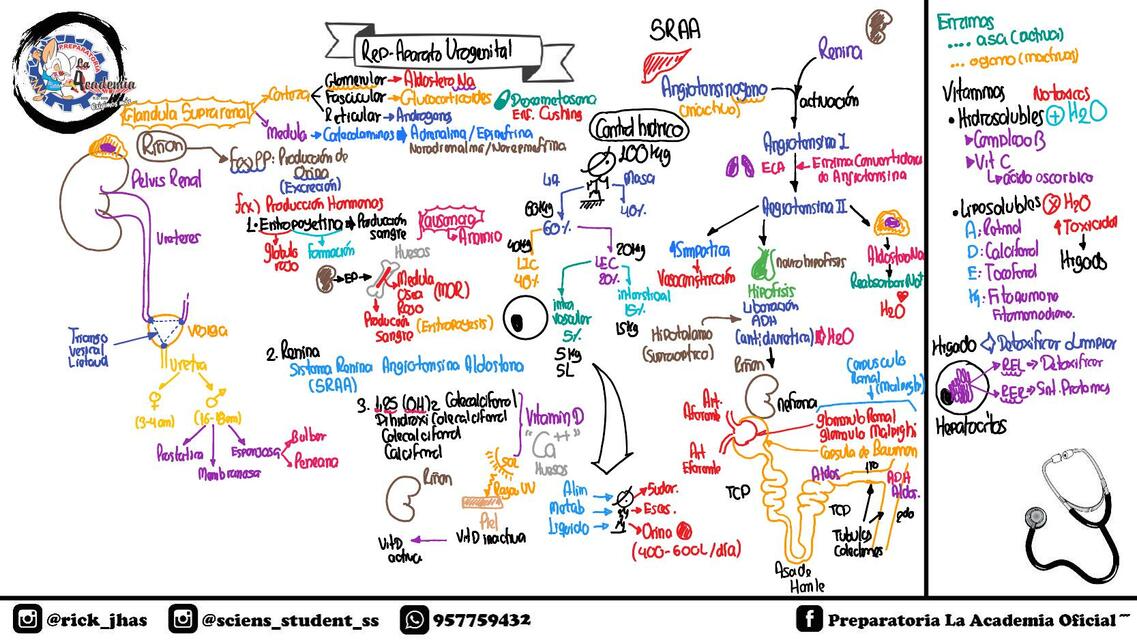 PREPARATORIA
La
Academia
Rep-Aparato Urogenital
Glandula Suprarrenal
Corteza
Glomerular → Aldosterona
Fascicular → Glucocorticoides
Dexametasona
Enf. Cushing
Reticular → Androgenos
Medula → Catecolaminas → Adrenalina / Epinefrina
Noradrenalina/Norepinefrina
Riñon
Producción de
Orina
(Excreción)
Pelvis Renal
Ureteres
Vejiga
Uretra
(3-4cm)
(16-18cm)
Prostatica
Membranosa
Esponjosa
Bulbar
Peneana
f(x) Producción Hormonas
1. Eritropoyetina → Producción
sangre
Globulo
rojo
Formación
Anemia
→ EP →
Huesos
Medula
Osea
Roja
(MOR)
Producción
Sangre
(Eritropoyesis)
2. Renina
Sistema Renina Angiotensina Aldosterona
(SRAA)
3. 1,25 (OH)2 Colecalciferol
Dihidroxi Colecalciferol
Colecalciferol
Calciferol
Vitamina D
"Ca++"
Huesos
Riñon
Sol
Rayos UV
Piel
Vit D inactiva
Vit D
activa
Control hidrico
100kg
Masa
40%
60kg
60%
40kg
LIC
40%
20kg
LEC
20%
intra
vascular
5%
5kg
5L
intersticial
15%
15kg
Alim
Metab
Liquido
Sudor.
Eses.
Orina
SRAA
Renina
Angiotensinogeno
(inactivo)
activación
Angiotensina I
ECA
Enzima Convertidora
de Angiotensina
Angiotensina II
↑Simpatica
Vasoconstricción
neurohipofisis
Hipofisis
Liberación
ADH
(antidiuretica)
H2O
Hipotalamo
(Supraoptico)
Aldosterona
Reabsorber Na+
H2O
Riñon
nefrona
Corpusculo
Renal
(Malpighi)
glomerulo Renal
glomerulo Malpighi
Capsula de Bauman
Art.
Aferente
Art
Eferente
TCP
Asa de
Henle
Aldos
TCP
Tubulos
Colectores
ADH
Aldos.
Enzimas
.... asa (activa)
... ogeno (inactivas)
Vitaminas
No toxicos
• Hidrosolubles + H2O
Complejo B
Vit C
ácido ascorbico
• Liposolubles H2O
A: Retinol
D: Calciferol
E: Tocoferol
K: Fitoquinona
Fitomenadiona.
↑Toxicidad
Higado
Higado
Detoxificar o Limpiar
REL → Detoxificar
RER → Sint. Proteinas
Hepatocitos
@rick_jhas
@sciens_student_ss
957759432
Preparatoria La Academia Oficial